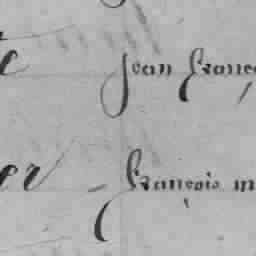 te Jean Franço
er - François m